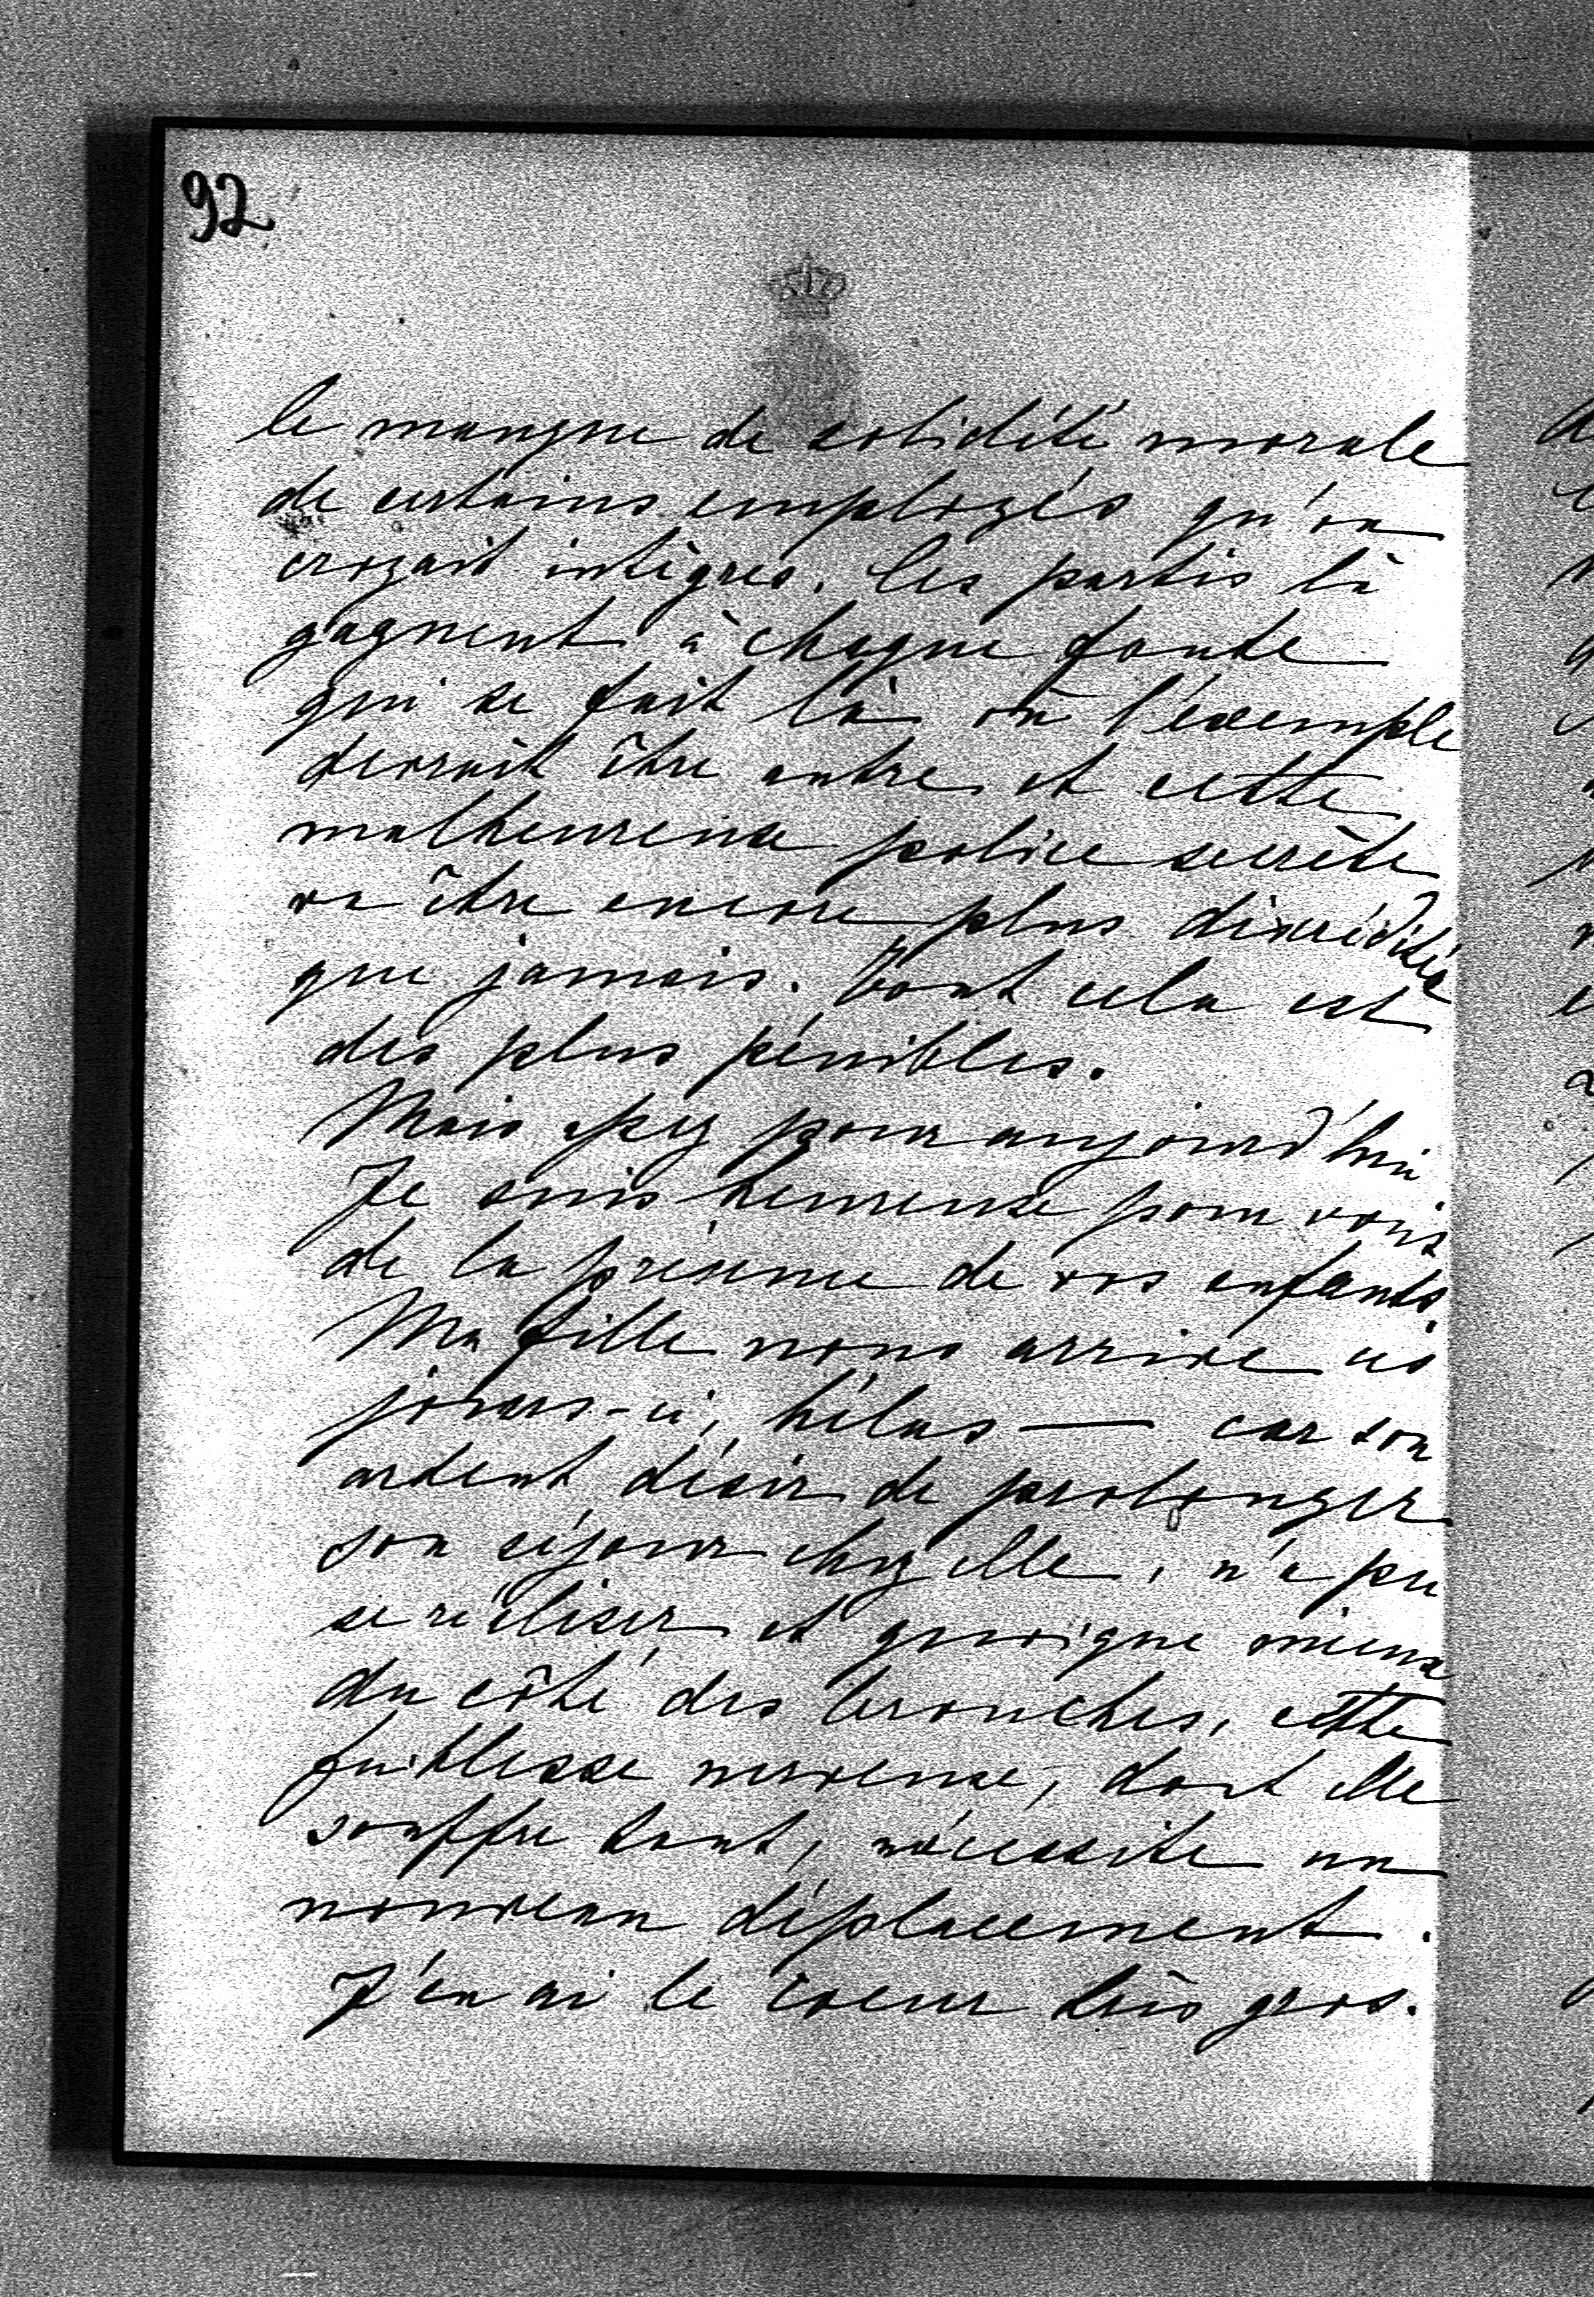 92
le manque de solidité morale
de certains employés qu'on
croyait intègres. Ces partis là
gagnent à chaque faute
qui se fait là où l'exemple
devrait être autre et cette
malheureuse police secrète
va être encore plus discréditée
que jamais. Tout cela est
des plus pénibles.
Mais assez pour aujourd'hui.
Je suis heureuse pour vous
de la présence de vos enfants.
Ma fille nous arrive ces
jours-ci, hélas — car son
ardent désir de prolonger
son séjour chez elle, n'a pu
se réaliser et quoique mieux
du côté des bronches, cette
faiblesse nerveuse, dont elle
souffre tant, nécessite un
nouveau déplacement.
J'en ai le coeur très gros.